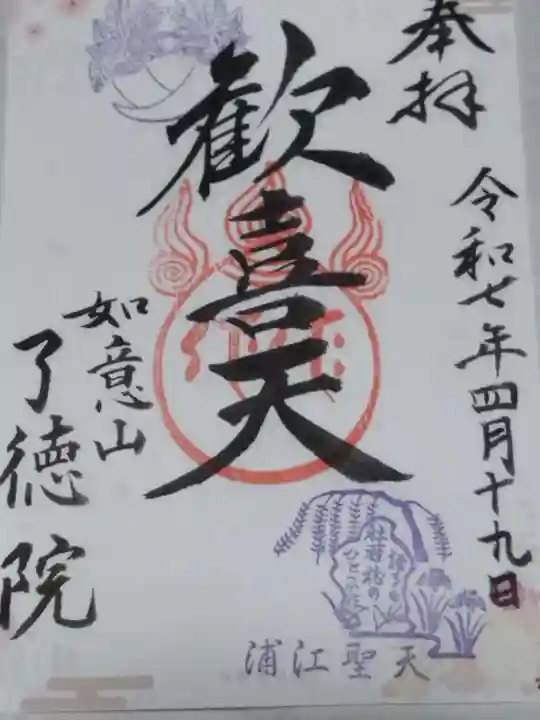 奉拝
令和七年四月十九日
歓喜天
如意山
了徳院
杜若
ひとつ
浦江聖天